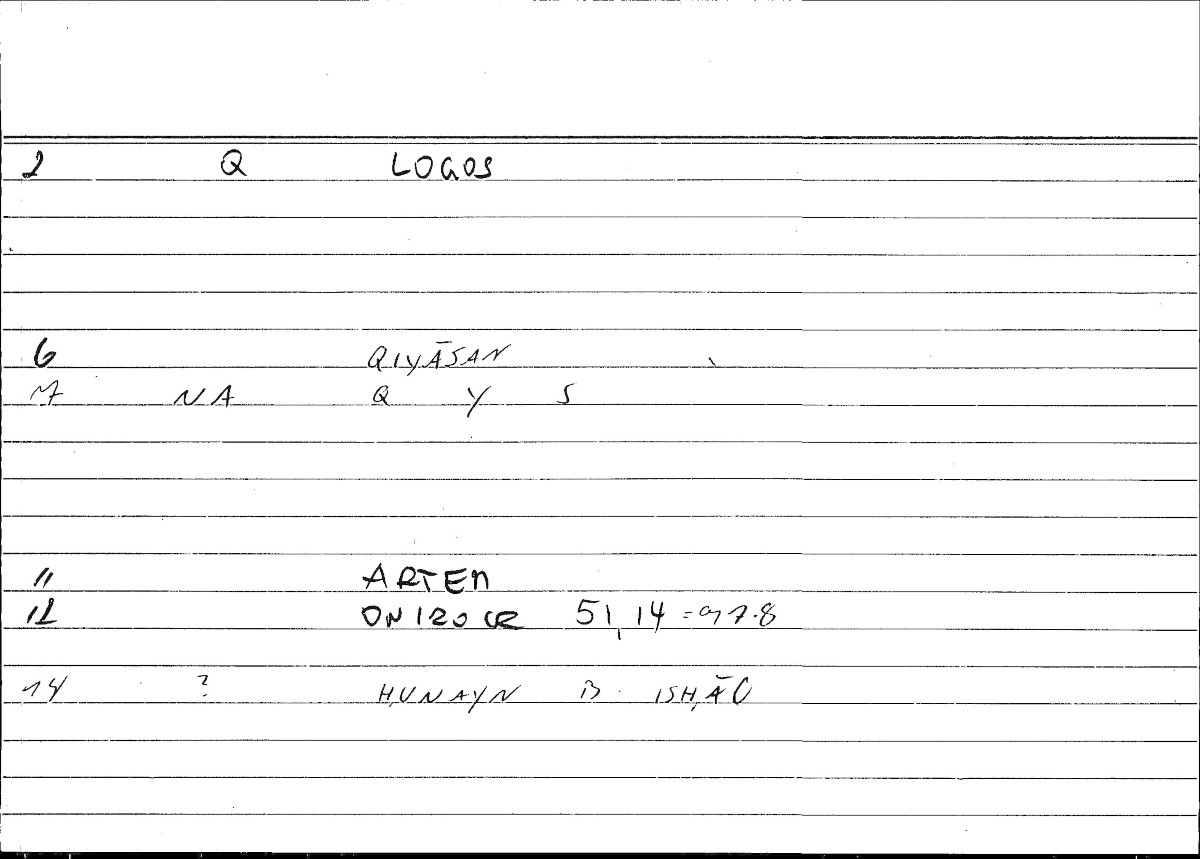 2 Q LOGOS
6 QIYĀSAN
17 NA Q Y S
11 ARTEM
12 ONIROCR 51,14 = 97.8
14 ? ḤUNAYN B. ISḤĀQ